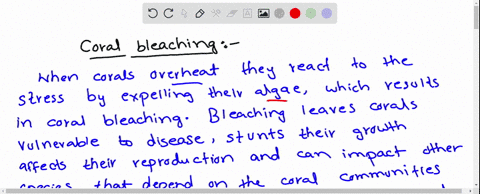 Coral bleaching:-
When corals overheat they react to the
stress by expelling their algae, which results
in coral bleaching. Bleaching leaves corals
vulnerable to disease, stunts their growth
affects their reproduction and can impact other
species that depend on the coral communities